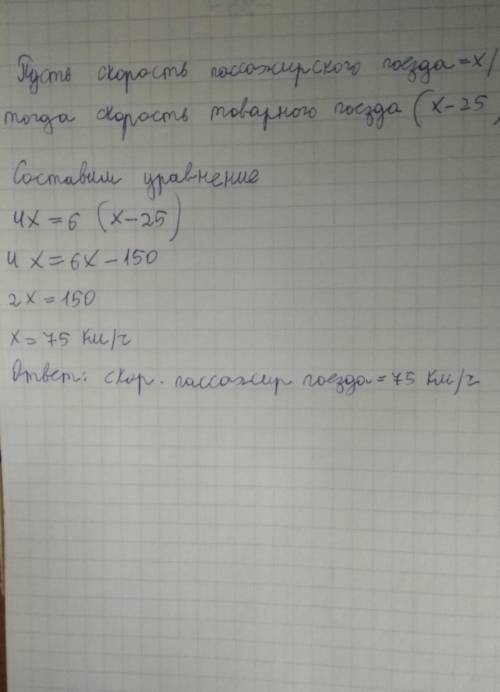 Пусть скорость пассажирского поезда = х/
тогда скорость товарного поезда (х-25)
Составим уравнение
4х = 6 (х-25)
4 х = 6х - 150
2х = 150
х = 75 км/ч
Ответ: скор. пассажир поезда = 75 км/ч